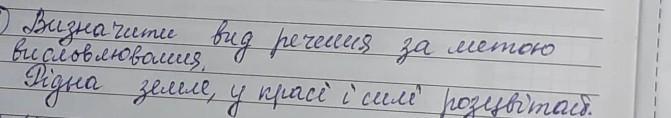 ) Визначити вид речення за метою
висловлювання.
Рідна земле, у красі і силі розцвітай.